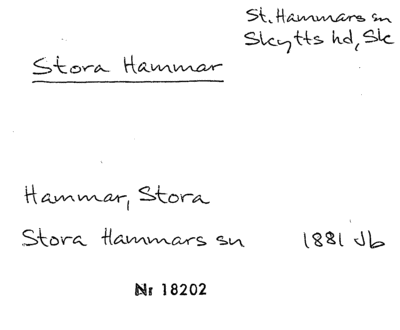 St. Hammars sn
Skytts hd, Sk
Stora Hammar
Hammar, Stora
Stora Hammars sn 1881 Jb
Nr 18202